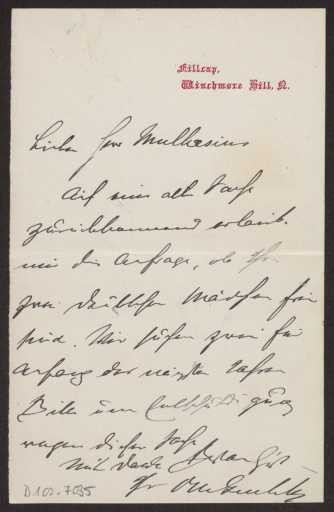 Fillcap,
Winchmore Hill, N.
Lieber Herr Muthesius
Auf eine alte Sache
zurückkommend erlaube
mir die Anfrage, ob Ihre
zwei deutschen Mädchen frei
sind. Wir suchen zwei für
Anfang des nächsten Jahres
Bitte um Entschuldigung
wegen dieser Sache
Mit Dank
Ihr
D 102-7035